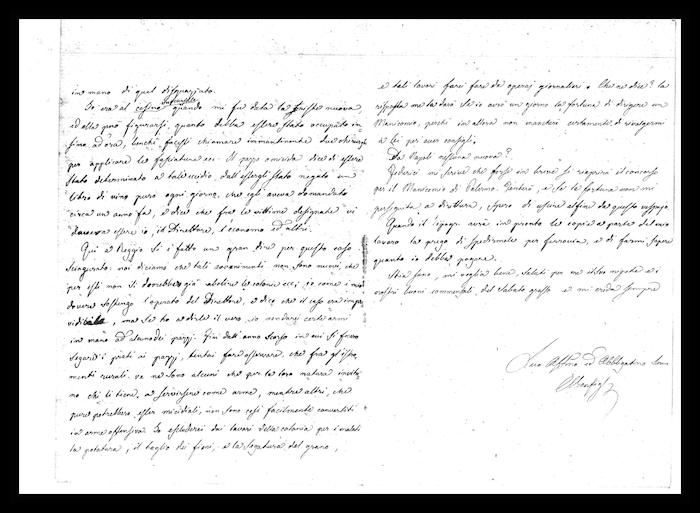 in mano di quel disgraziato.
Io era al casino sociale quando mi fu data la triste nuova,
ed ella può figurarsi quanto debba essere stato occupato in-
sino ad ora, benchè facessi chiamare immantinente due chirurgi
per applicare le fasciature ecc. Il pazzo omicida dice di essere
stato determinato a tale eccidio dall'essergli stato negato un
litro di vino puro ogni giorno, che egli aveva domandato
circa un anno fa, e dice che fra le vittime designate vi
doveva essere io, il Direttore, l'economo ed altri.
Qui a Reggio si è fatto un gran dire per questo caso
sciagurato: noi diciamo che tali avvenimenti non sono nuovi, che
per essi non si dovrebbero già abolire le colonie ecc; io come è mio
dovere sostengo l'operato del Direttore, e dico che il caso era impre-
vidibile, ma se ho a dirle il vero, io non darei certe armi
in mano ad alcuno dei pazzi. Fin dall'anno scorso in cui si fecero
segare i prati ai pazzi, tentai fare osservare, che fra gl'istru-
menti rurali ve ne sono alcuni che per la loro natura invita-
no chi li tiene, a servirsene come arme, mentre altri, che
pure potrebbero esser micidiali, non sono così facilmente convertiti
in arme offensiva. Io escluderei dai lavori della colonia per i malati
la potatura, il taglio dei fieni, e la segatura del grano,
e tali lavori farei fare da operaj giornalieri. Che ne dice? la
risposta me la darà se io avrò un giorno la fortuna di dirigere un
Manicomio, perchè in allora non mancherò certamente di rivolgermi
a lei per aver consigli.
Da Napoli nessuna nuova?
Federici mi scrive che forse in breve si riaprirà il concorso
per il Manicomio di Palermo. Tenterò, e se la fortuna non mi
perseguita a dirittura, spero di uscire alfine da questo
Quando il avrà in pronto le copie a parte del mio
lavoro la prego di spedirmele per ferrovia, e di farmi sapere
quanto io debba pagare.
Stia sano, mi voglia bene, saluti per me il suo nipote e i
nostri buoni commensali del sabato grasso e mi creda sempre
Suo Affmo ed Obbligatmo